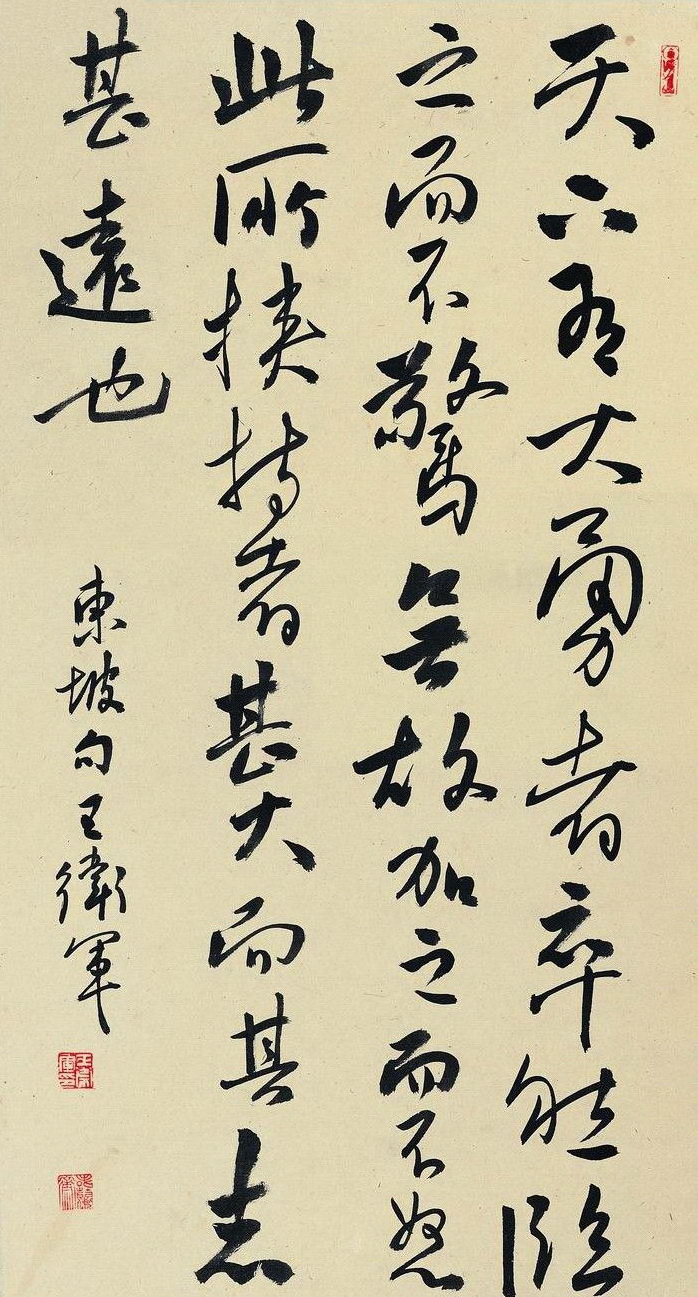 天下有大勇者卒然臨
之而不驚無故加之而不怒
此所挾持者甚大而其志
甚遠也
東坡句王衛軍